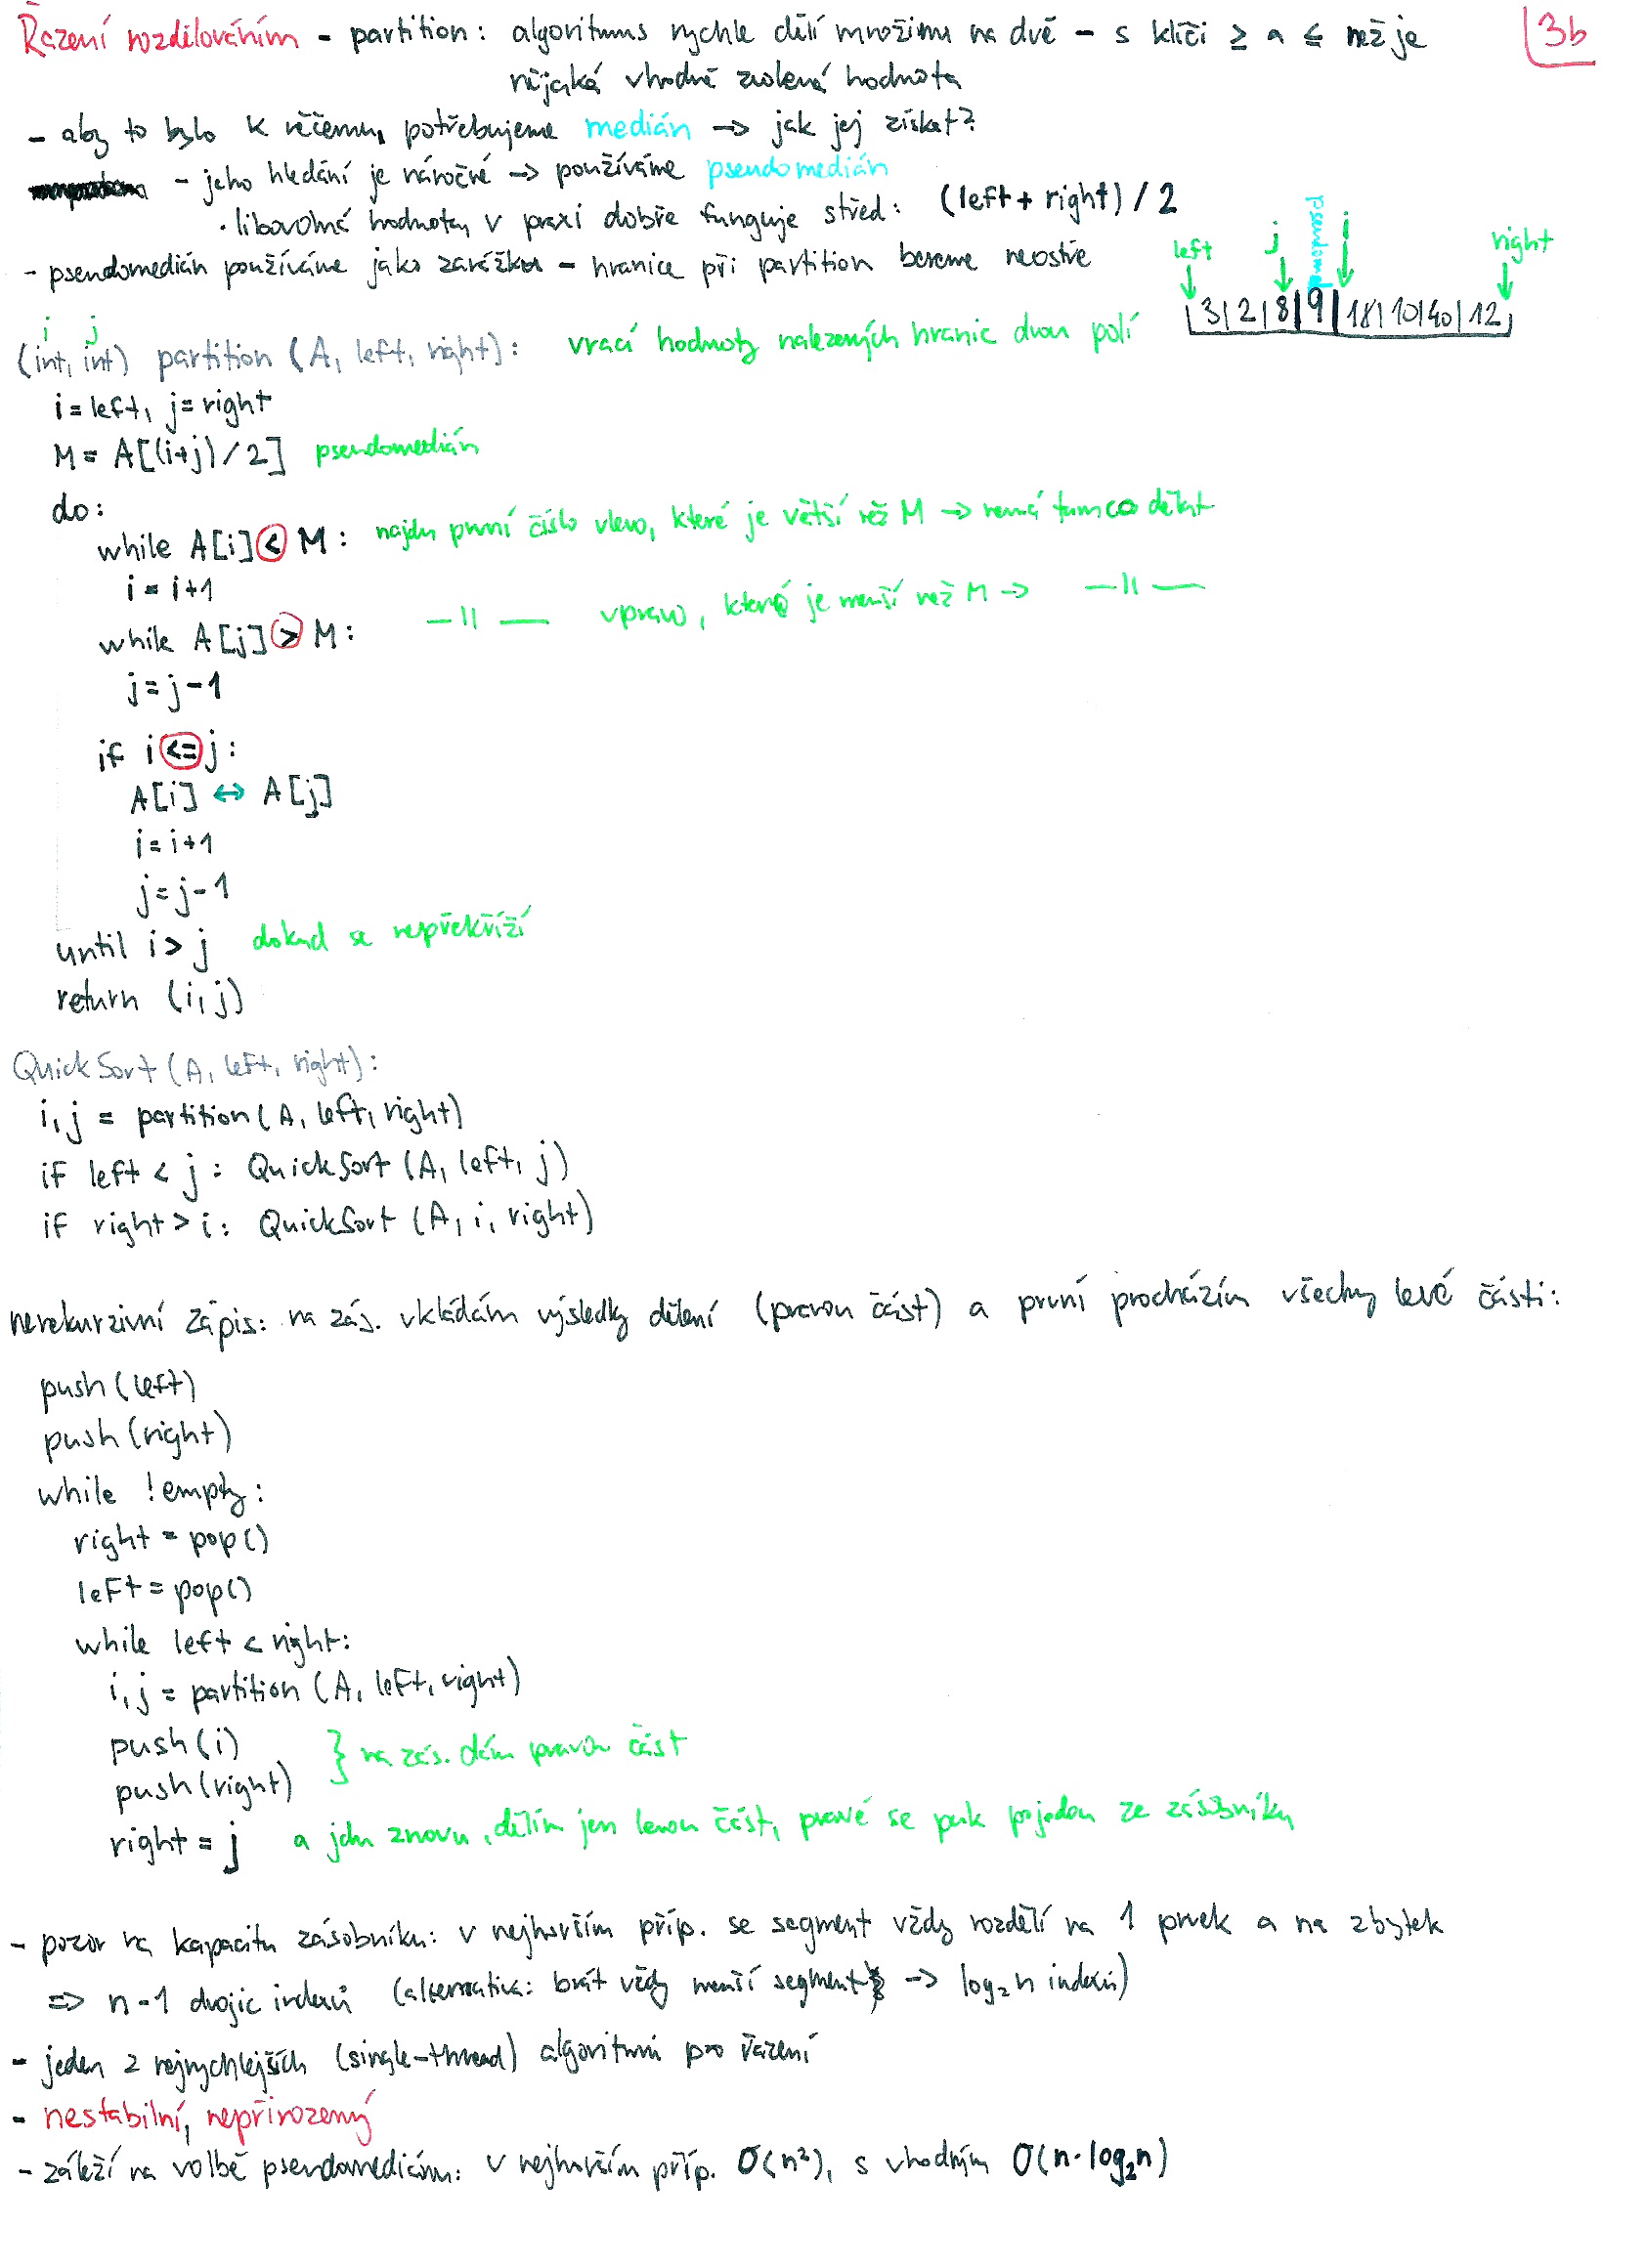 Řazení rozdělováním - partition: algoritmus rychle dělí množinu na dvě - s klíči ≥ a ≤ než je
nějaká vhodně zvolená hodnota
3b
- aby to bylo k něčemu, potřebujeme medián → jak jej získat?
- jeho hledání je náročné → používáme pseudomedián
· libovolná hodnota, v praxi dobře funguje střed: (left + right) / 2
- pseudomedián používáme jako zarážku - hranice při partition bereme neostře
left j pseudomed i right
3 | 2 | 8 | 9 | 18 | 10 | 40 | 12
i j
(int, int) partition (A, left, right): vrací hodnoty nalezených hranic dvou polí
i = left, j = right
M = A[(i+j)/2] pseudomedián
do:
while A[i] < M: najdu první číslo vlevo, které je větší než M → nemá tam co dělat
i = i+1
while A[j] > M: —||— vpravo, které je menší než M → —||—
j = j-1
if i <= j:
A[i] ↔ A[j]
i = i+1
j = j-1
until i > j dokud se nepřekříží
return (i, j)
QuickSort (A, left, right):
i, j = partition (A, left, right)
if left < j: QuickSort (A, left, j)
if right > i: QuickSort (A, i, right)
nerekurzivní zápis: na zás. vkládám výsledky dělení (pravou část) a první procházím všechny levé části:
push (left)
push (right)
while !empty:
right = pop()
left = pop()
while left < right:
i, j = partition (A, left, right)
push (i)
push (right) } na zás. dám pravou část
right = j a jdu znovu, dělím jen levou část, pravé se pak pojedou ze zásobníku
- pozor na kapacitu zásobníku: v nejhorším příp. se segment vždy rozdělí na 1 prvek a na zbytek
=> n-1 dvojic indexů (alternativa: brát vždy menší segment → log₂n indexů)
- jeden z nejrychlejších (single-thread) algoritmů pro řazení
- nestabilní, nepřirozený
- záleží na volbě pseudomediánu: v nejhorším příp. O(n²), s vhodným O(n·log₂n)